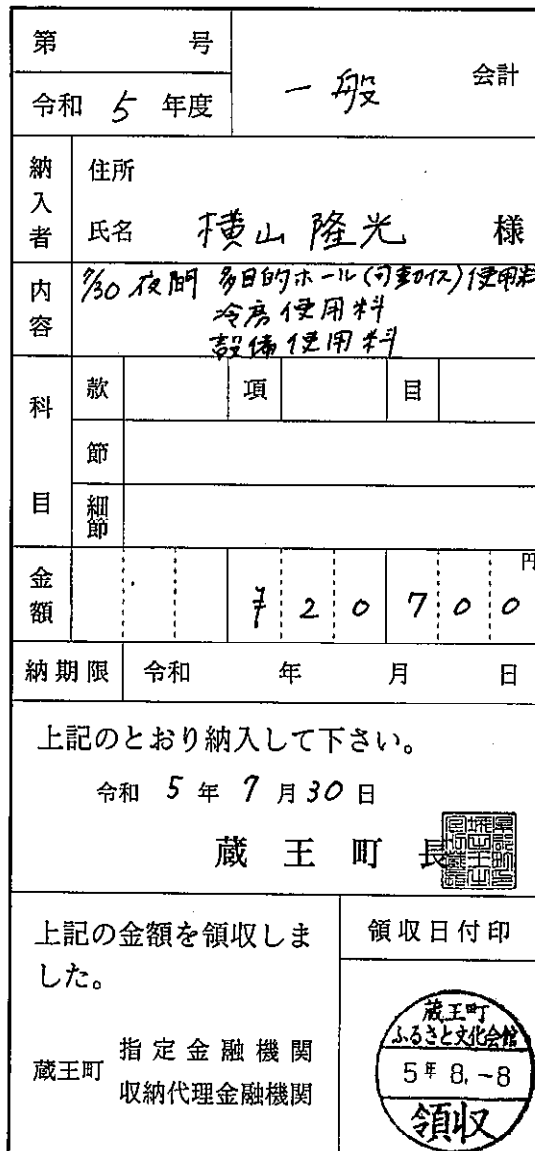 第 号
令和 5 年度
一般 会計
納入者
住所
氏名 横山 隆光 様
内容
7/30 夜間 多目的ホール(可動イス)使用料
冷房使用料
設備使用料
科目
款 項 目
節
細節
金額
円
¥ 2 0 7 0 0
納期限 令和 年 月 日
上記のとおり納入して下さい。
令和 5 年 7 月 30 日
蔵王町長
上記の金額を領収しま
した。
蔵王町 指定金融機関
収納代理金融機関
領収日付印
蔵王町
ふるさと文化会館
5年 8.-8
領収